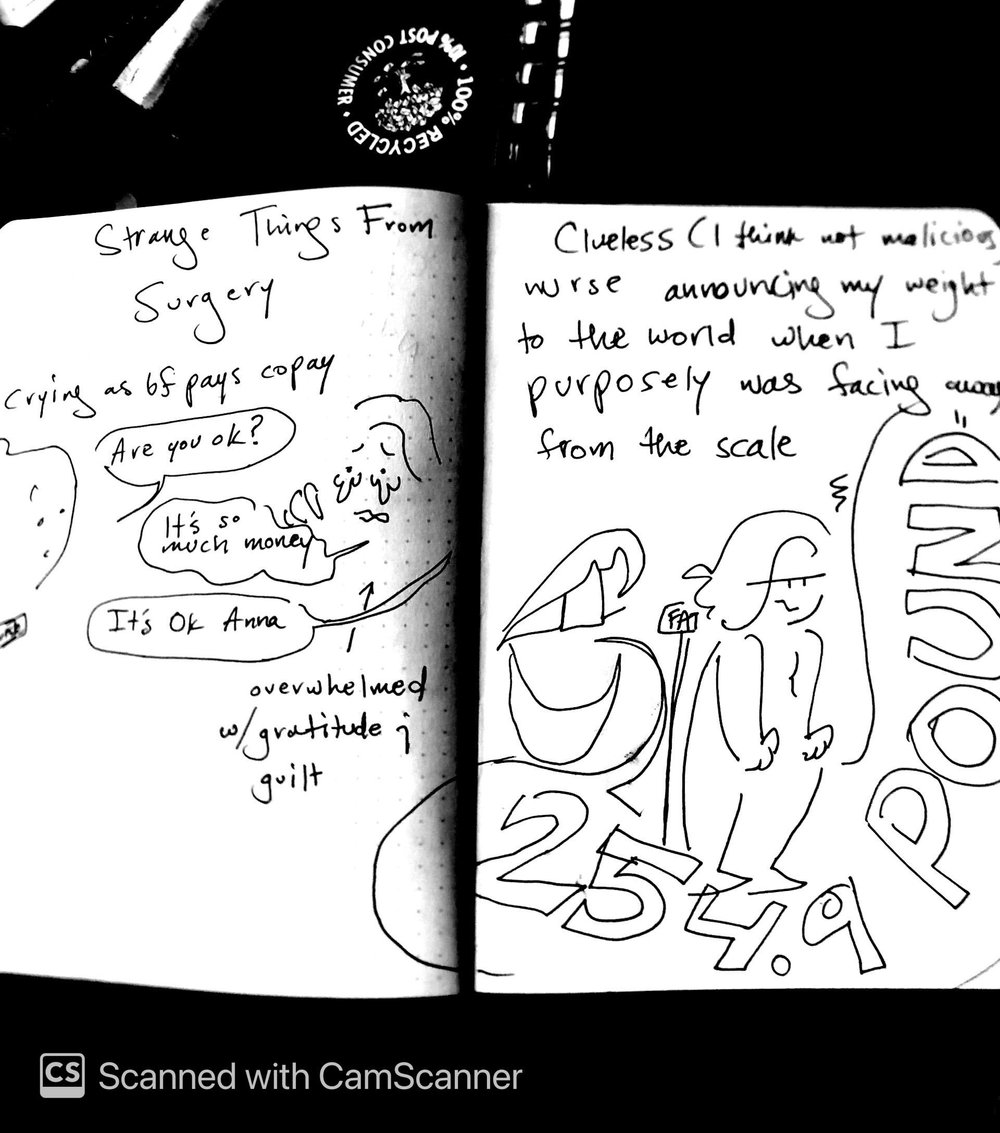 100% RECYCLED • 10% POST CONSUMER •
Strange Things From
Surgery
crying as bf pays copay
Are you ok?
It's so
much money
It's Ok Anna
overwhelmed
w/gratitude
guilt
Clueless (I think not malicious
nurse announcing my weight
to the world when I
purposely was facing away
from the scale
FA
254.9
POUND
CS Scanned with CamScanner